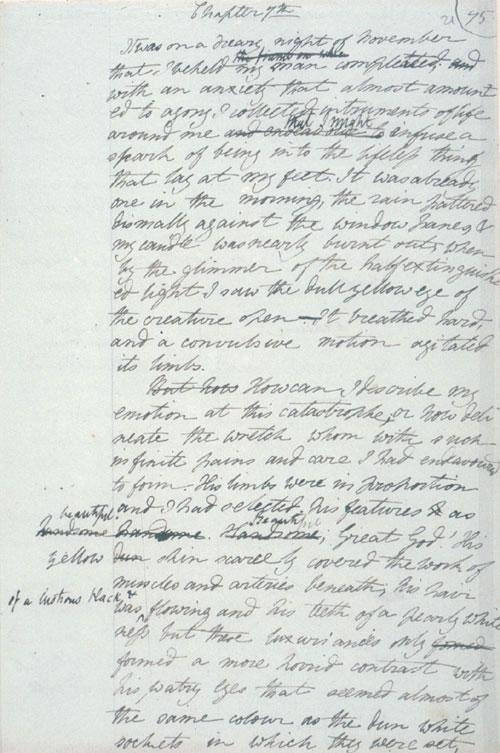 Chapter 7th
21 95
It was on a dreary night of November
the frame on whic
that I beheld my man completeed and
with an anxiety that almost amount
ed to agony, I collected instruments of life
that I might
around me and endeavour to infuse a
spark of being into the lifeless thing
that lay at my feet. It was already
one in the morning, the rain pattered
dismally against the window panes, &
my candle was nearly burnt out, when
by the glimmer of the half extinguish
ed light I saw the dull yellow eye of
the creature open — It breathed hard,
and a convulsive motion agitated
its limbs.
But how How can I describe my
emotion at this catastrophe, or how deli
neate the wretch whom with such
infinite pains and care I had endeavoured
to form. His limbs were in proportion
and I had selected his features as
beautiful. handsome handsome. Handsome, Beautiful; Great God! His
yellow dun skin scarcely covered the work of
muscles and arteries beneath; his hair
of a lustrous black, &
was flowing and his teeth of a pearly white
ness but these luxuriances only formed
formed a more horrid contrast with
his watry eyes that seemed almost of
the same colour as the dun white
sockets in which they were set